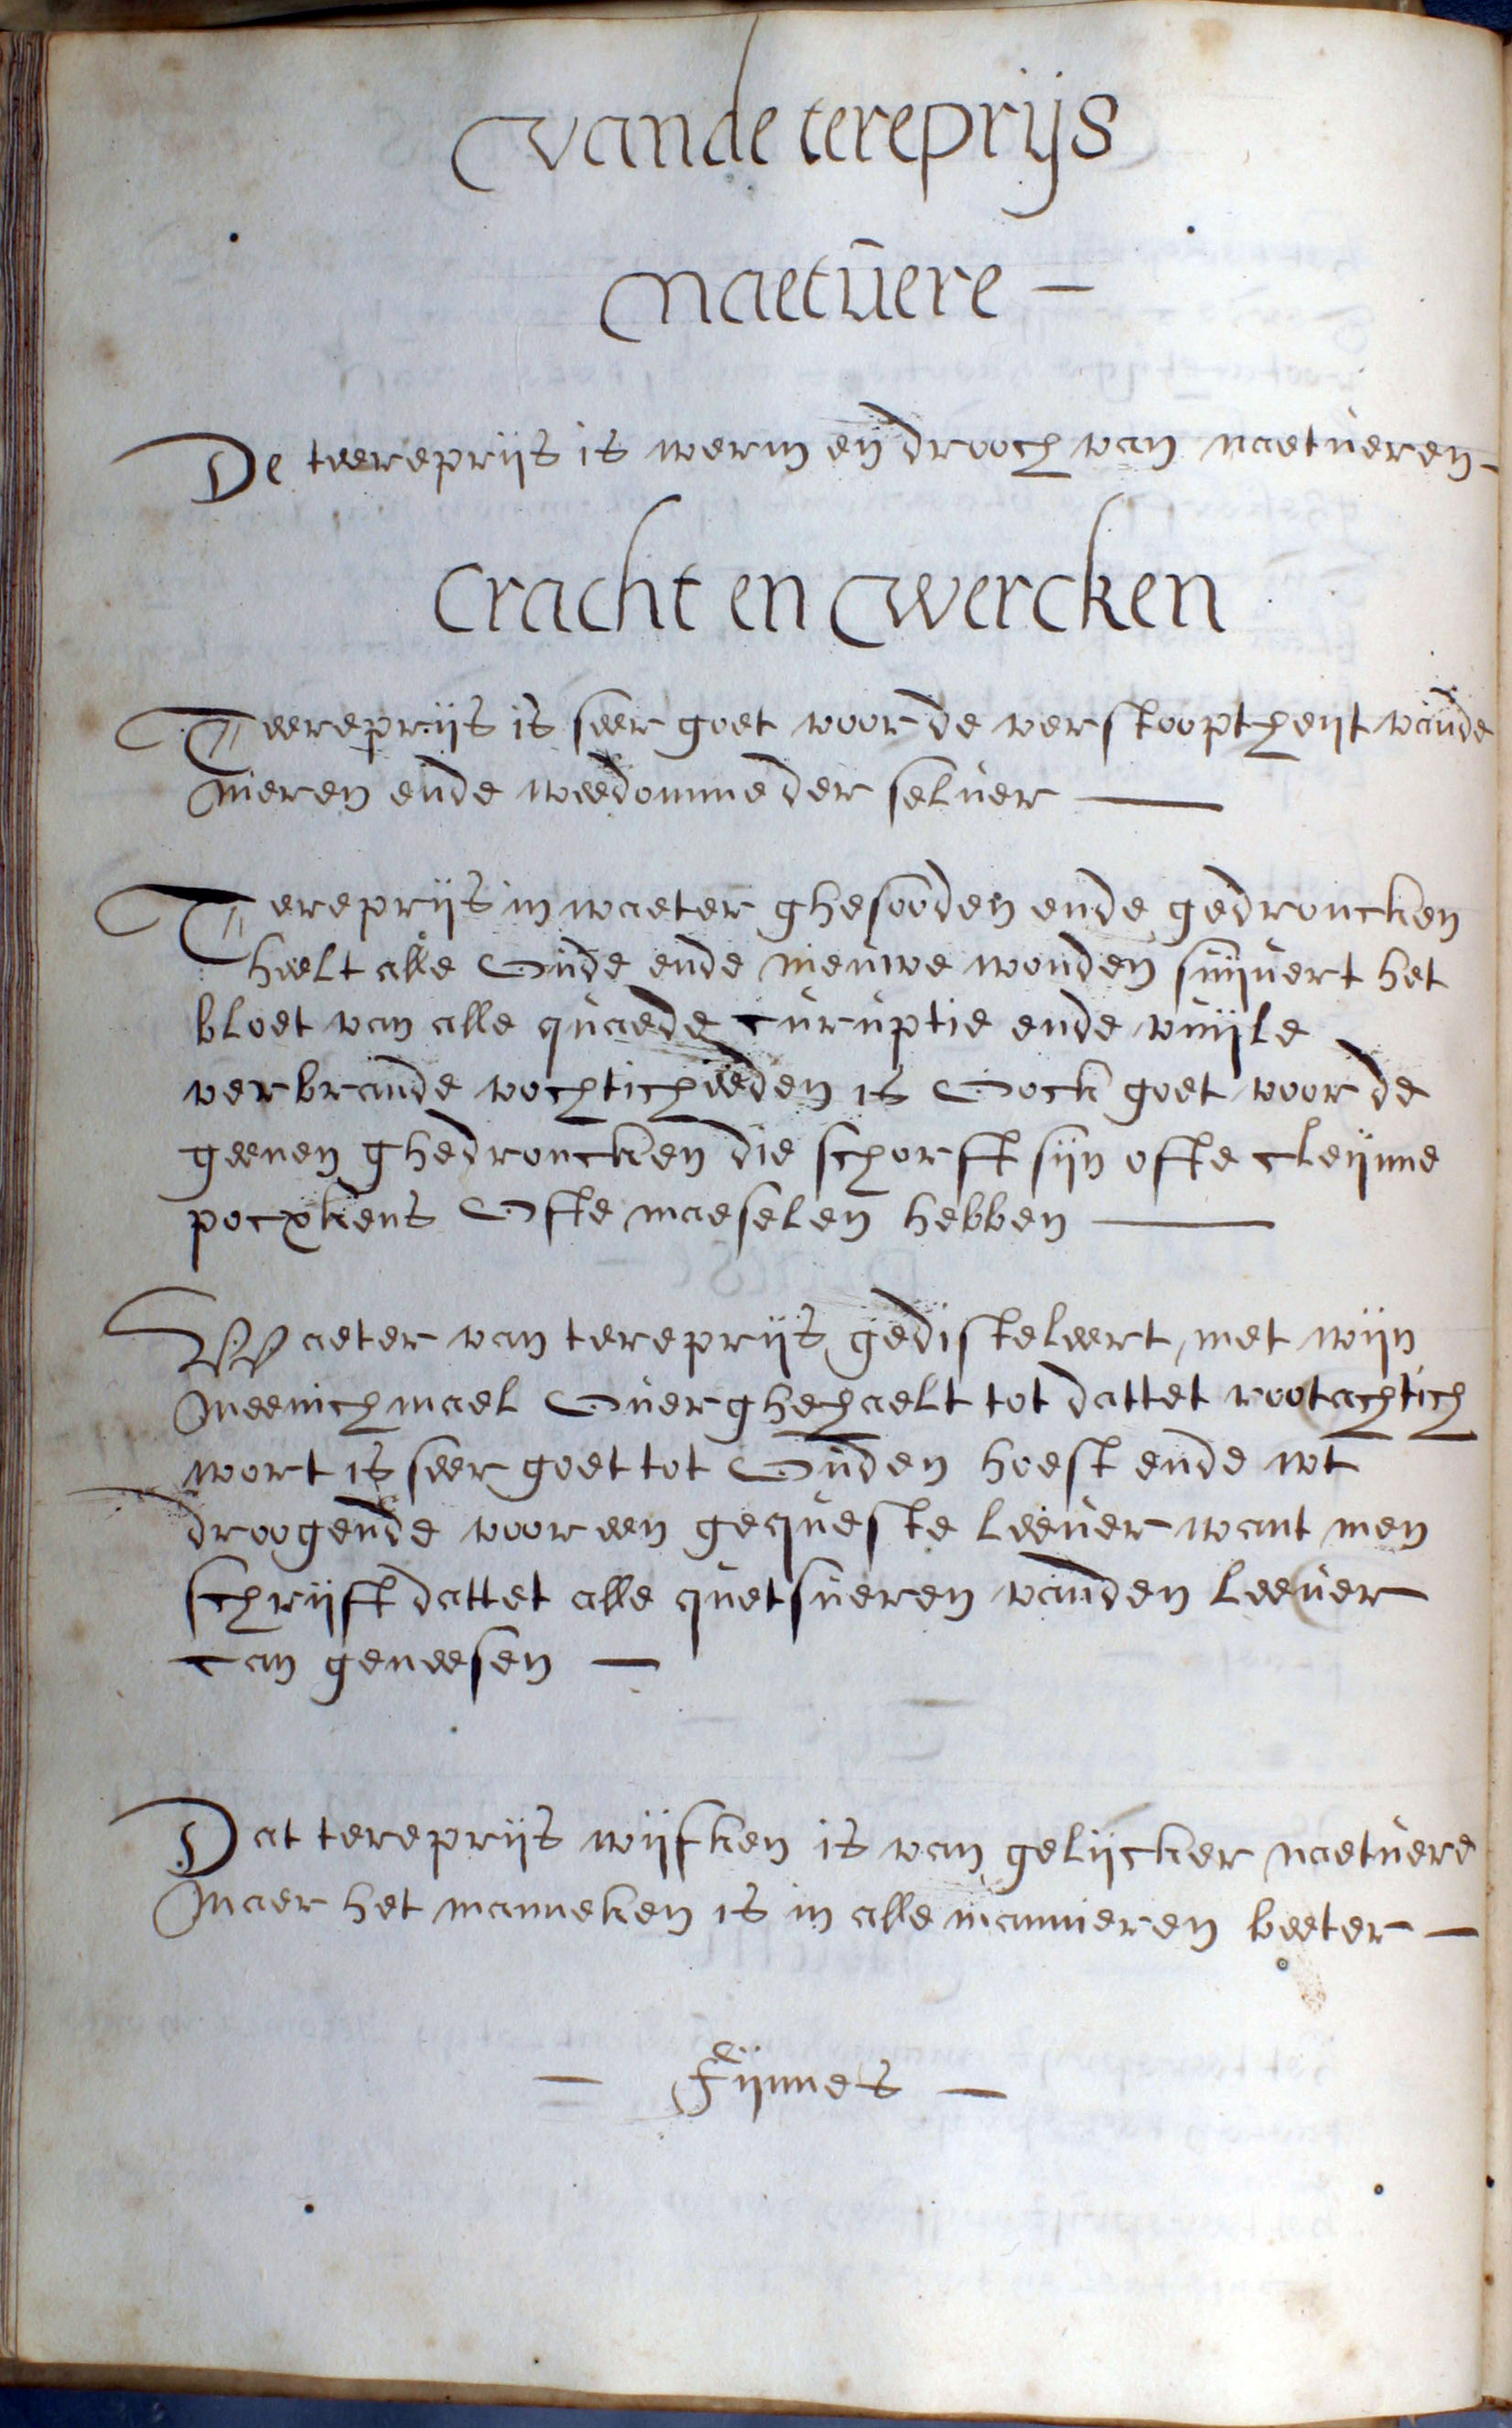 vande tereprijs
naetuere —
De teereprijs is werm en drooch van naetueren -
cracht en wercken
Teereprijs is seer goet voor de verstooptheyt vande
nieren ende weedomme der seluer —
Tereprijs in waeter ghesooden ende gedroncken
heelt alle Oude ende nieuwe wonden suijuert het
bloet van alle quaede curuptie ende vuijle
verbrande vochticheeden is Oock goet voor de
geenen ghedroncken die schorft sijn ofte cleijnne
pocxkens Ofte maeselen hebben —
Waeter van tereprijs gedisteleert, met wijn
meenichmael Ouerghehaelt tot dattet rootachtich
wort is seer goet tot Ouden hoest ende wt
droogende voor een gequeste leeuer want men
schrijft dattet alle quetsueren vanden leeuer
can geneesen —
Dat tereprijs wijfken is van gelijcker naetuere
Maer het manneken is in alle mannieren beeter —
— Fijnnes —